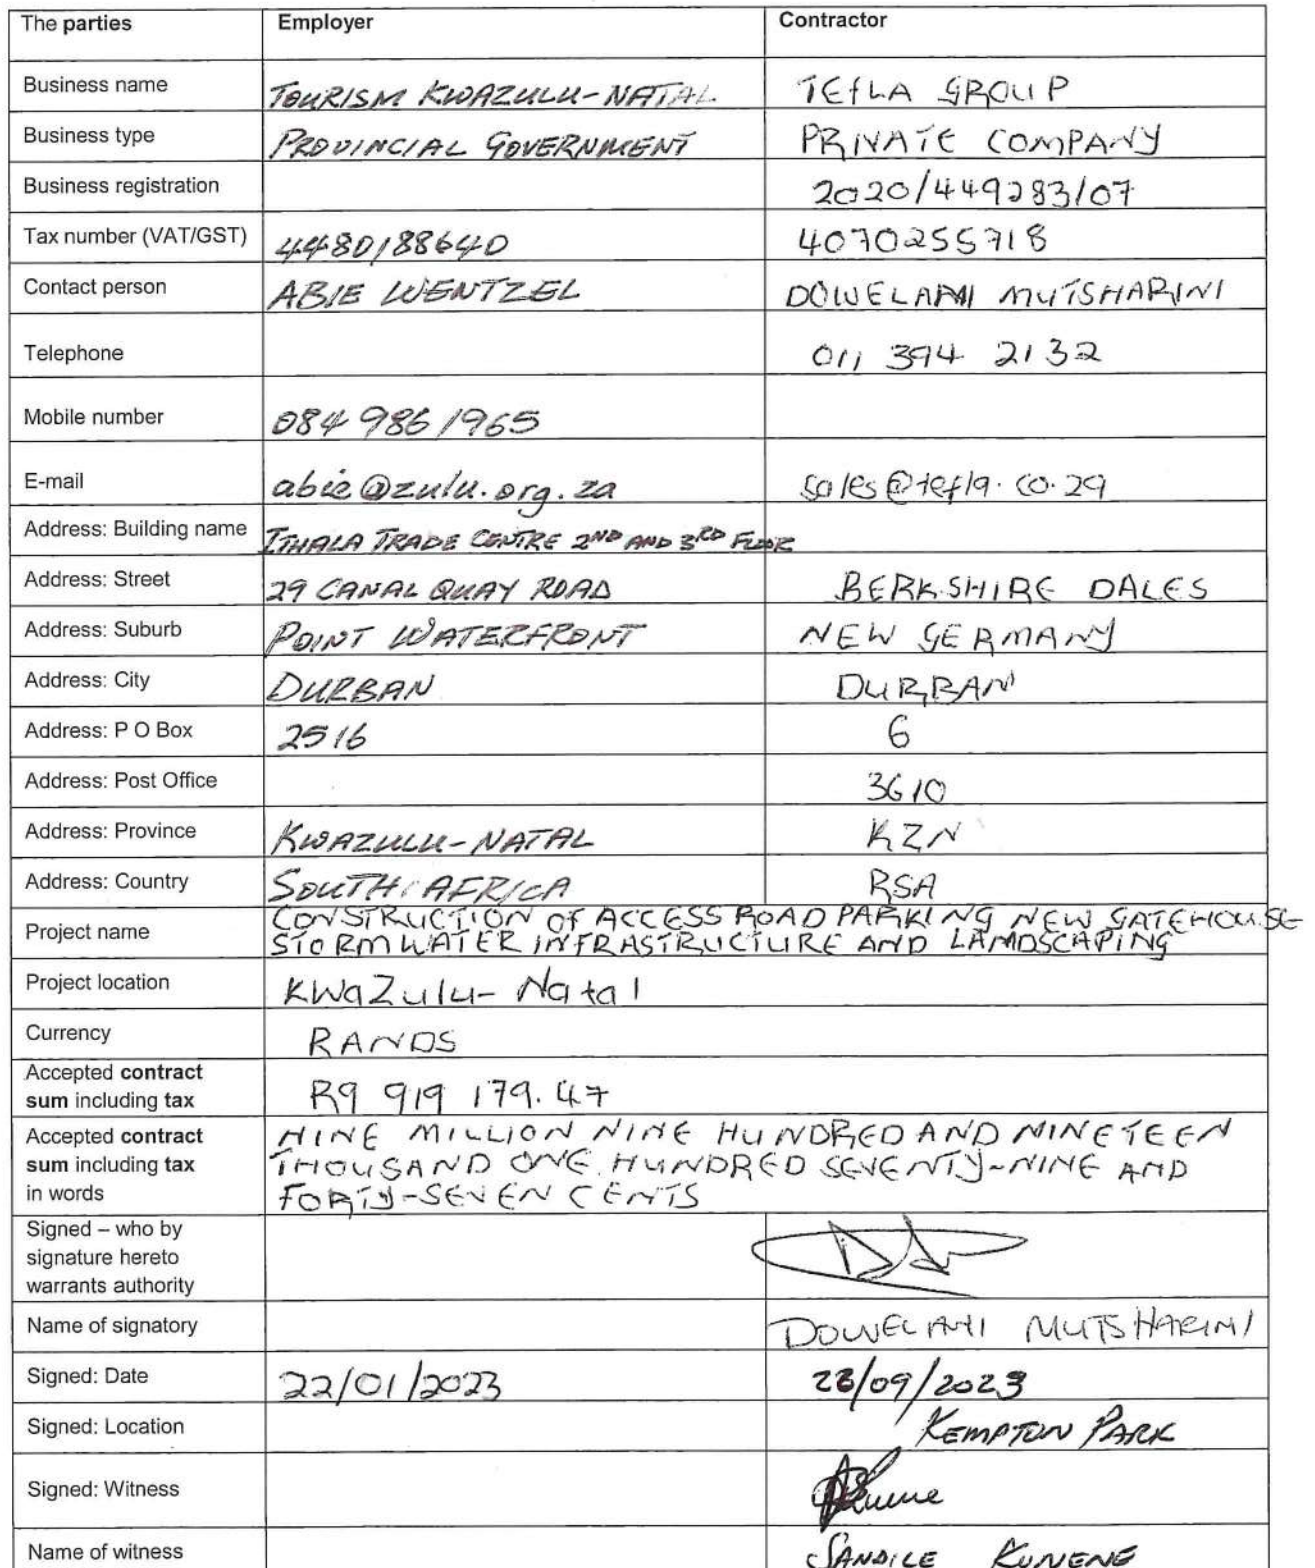 The parties Employer Contractor
Business name TOURISM KWAZULU-NATAL TEFLA GROUP
Business type PROVINCIAL GOVERNMENT PRIVATE COMPANY
Business registration 2020/449283/07
Tax number (VAT/GST) 4480188640 4070255718
Contact person ABIE WENTZEL DOWELANI MUTSHARINI
Telephone 011 394 2132
Mobile number 084 986 1965
E-mail abie@zulu.org.za sales@tefla.co.za
Address: Building name ITHALA TRADE CENTRE 2ND AND 3RD FLOOR
Address: Street 29 CANAL QUAY ROAD BERKSHIRE DALES
Address: Suburb POINT WATERFRONT NEW GERMANY
Address: City DURBAN DURBAN
Address: P O Box 2516 6
Address: Post Office 3610
Address: Province KWAZULU-NATAL KZN
Address: Country SOUTH AFRICA RSA
Project name CONSTRUCTION OF ACCESS ROAD PARKING NEW GATEHOUSE
STORMWATER INFRASTRUCTURE AND LANDSCAPING
Project location KWaZulu-Natal
Currency RANDS
Accepted contract
sum including tax R9 919 179.47
Accepted contract
sum including tax
in words
NINE MILLION NINE HUNDRED AND NINETEEN
THOUSAND ONE HUNDRED SEVENTY-NINE AND
FORTY-SEVEN CENTS
Signed – who by
signature hereto
warrants authority
Name of signatory DOWELANI MUTSHARINI
Signed: Date 22/01/2023 /09/2023
Signed: Location KEMPTON PARK
Signed: Witness
Name of witness SANDILE KUNENE